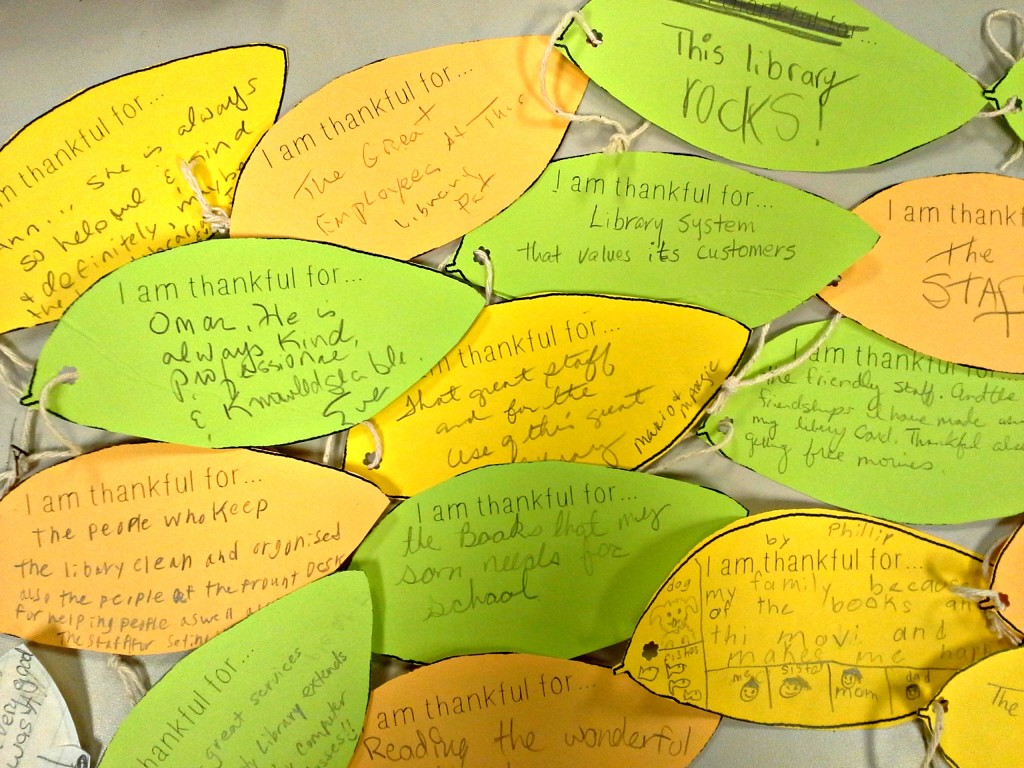 thankful for...
Ann... She is always
so helpful & kind
& definitely maybe
the
I am thankful for...
The Great
Employees At This
Library
I am thankful for...
This library
rocks!
I am thankful for...
Library System
that values its customers
I am thankf
the
STAF
I am thankful for...
Omar. He is
always kind,
professional
& knowledgeable.
Ever
I am thankful for...
That great staff
and for the
use of this great
Mario &
I am thankful for...
the friendly staff. And the
friendships I have made usin
my libary Card. Thankful also
going free movies.
I am thankful for...
The people who keep
the libary clean and organised
also the people at the frount Desk
for helping people aswell a
The Staff for
I am thankful for...
the Books that my
som neepls for
school
by Phillip
I am thankful for...
my family because
of the books an
thi movi and
makes me happ
dog
fishes
me
sister
mom
dad
thankful for...
great services
Library extends
computer
am thankful for...
Reading the wonderful
The
very good
was